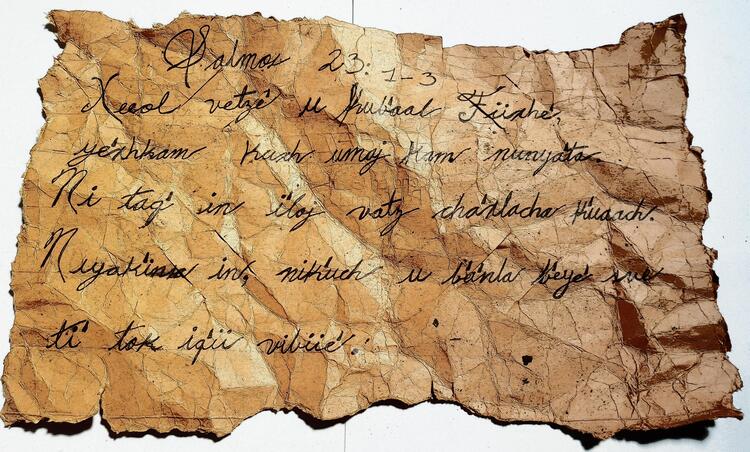 Salmos 23:1-3
Xeeol vetze' u kub'aal Tiixhe',
ye'xhkam kuxh umaj kam nunyata.
Ni taq' in iloj vatz cha'xlacha k'uaach.
Niyak'insa in, nik'uch u b'a'nla b'eye' sve
ti' tok iqii vib'iie'.